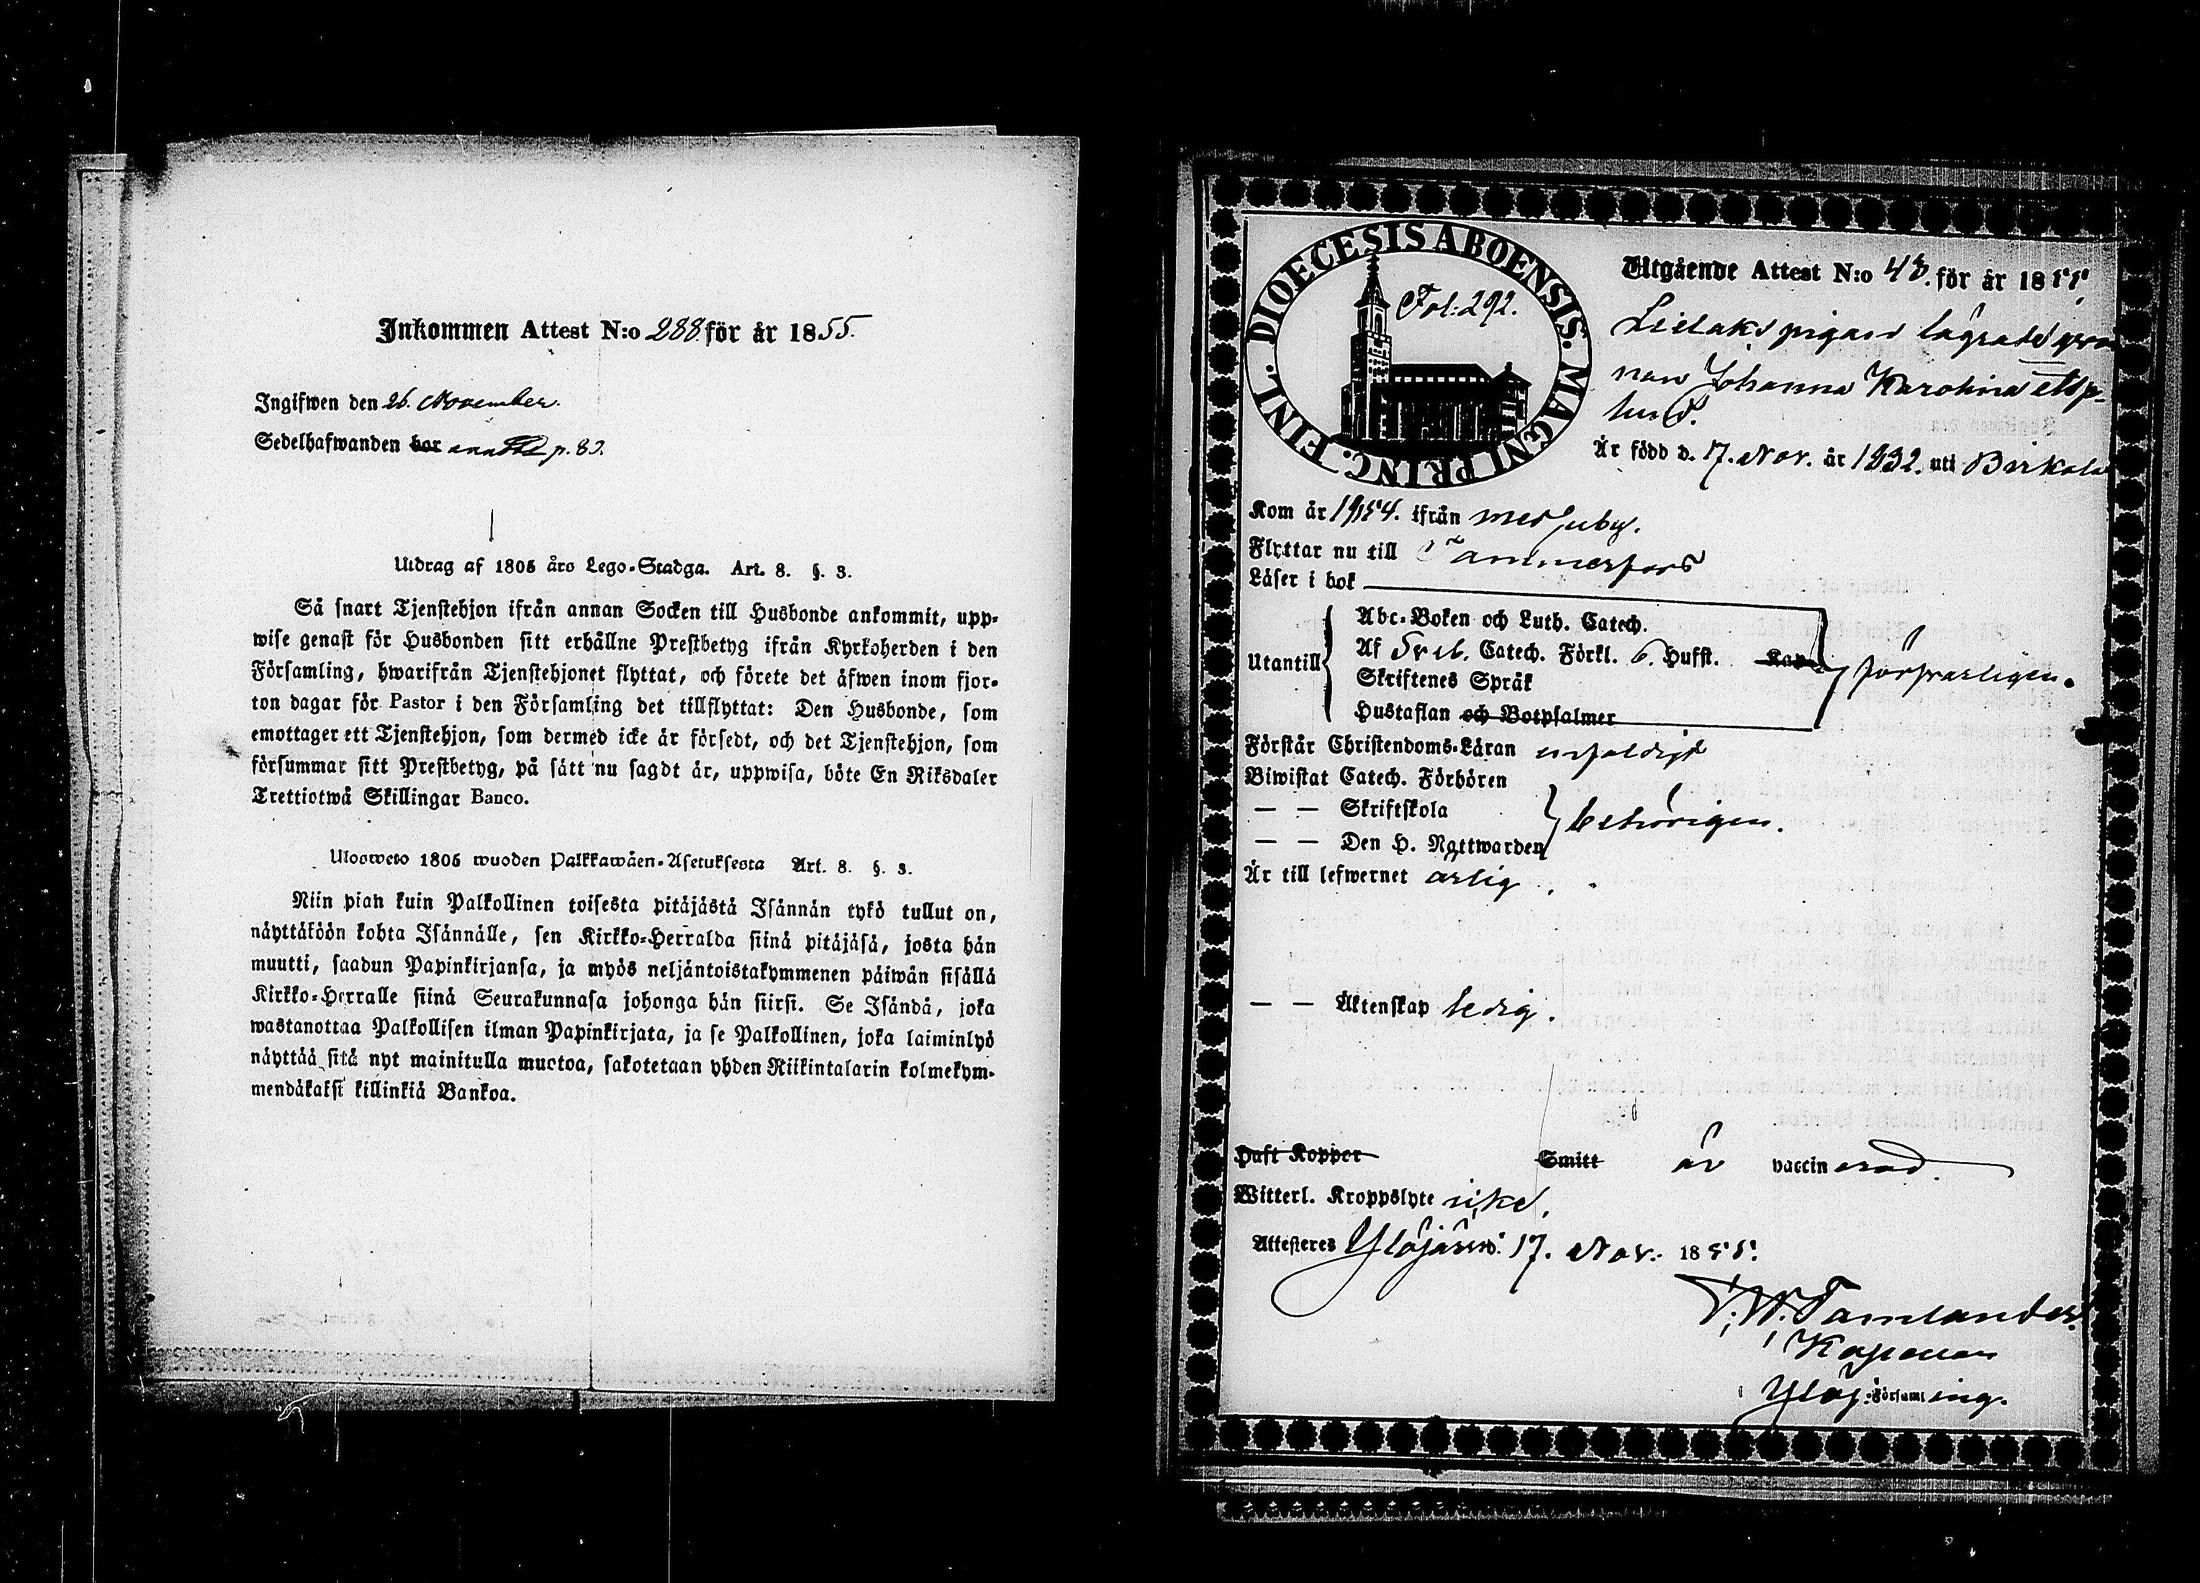 Inkommen Attest N:o 288 för år 1855.
Ingifwen den 26. November.
Sedelhafwanden har p. 83.
Utdrag af 1805 års Lego-Stadga. Art. 8. §. 3.
Så snart Tjenstehjon ifrån annan Socken till Husbonde ankommit, upp-
wise genast för Husbonden sitt erhållne Prestbetyg ifrån Kyrkoherden i den
Församling, hwarifrån Tjenstehjonet flyttat, och förete det äfwen inom fjor-
ton dagar för Pastor i den Församling det tillflyttat: Den Husbonde, som
emottager ett Tjenstehjon, som dermed icke är försedt, och det Tjenstehjon, som
försummar sitt Prestbetyg, på sätt nu sagdt är, uppwisa, böte En Riksdaler
Trettiotwå Skillingar Banco.
Uloswets 1805 wuoden Palkkawäen-Asetuksesta Art. 8. §. 3.
Niin pian kuin Palkollinen toisesta pitäjästä Isännän tykö tullut on,
näyttäköön kohta Isännälle, sen Kirkko-Herralda siinä pitäjäsä, josta hän
muutti, saadun Papinkirjansa, ja myös neljäntoistakymmenen päiwän sisällä
Kirkko-Herralle siinä Seurakunnasa johonga hän siirsi. Se Isändä, joka
wastanottaa Palkollisen ilman Papinkirjata, ja se Palkollinen, joka laiminlyö
näyttää sitä nyt mainitulla muotoa, sakotetaan yhden Riikintalarin kolmekym-
mendäkaksi killinkiä Bankoa.
DIOECESIS ABOENSIS. MAGNI PRINC. FINL.
Fol: 292.
Utgående Attest N:o 43. för år 1855.
Lielaks pigan
nan Johanna Karolina Asp-
lund.
Är född d. 17. Nov. år 1832. uti Birkala
Kom år 1854. ifrån
Flyttar nu till Tammerfors
Läser i bok
Utantill
Abc-Boken och Luth. Catech.
Af Sveb. Catech. Förkl. 6. Hufst. Kap
Skriftenes Språk
Hustaflan och Botpsalmer
försvarligen.
Förstår Christendoms-Läran enfaldigt
Biwistat Catech. Förhören
— — Skriftskola
— — Den H. Nattwarden
behörigen.
Är till lefwernet ärlig.
— — Äktenskap ledig.
Haft Koppor Smitt är vaccinerad.
Witterl. Kroppslyte icke.
Attesteres Ylöjärvi. 17. Nov. 1855.
F. W. Tamlander.
Kapellan
Ylöj. Församling.